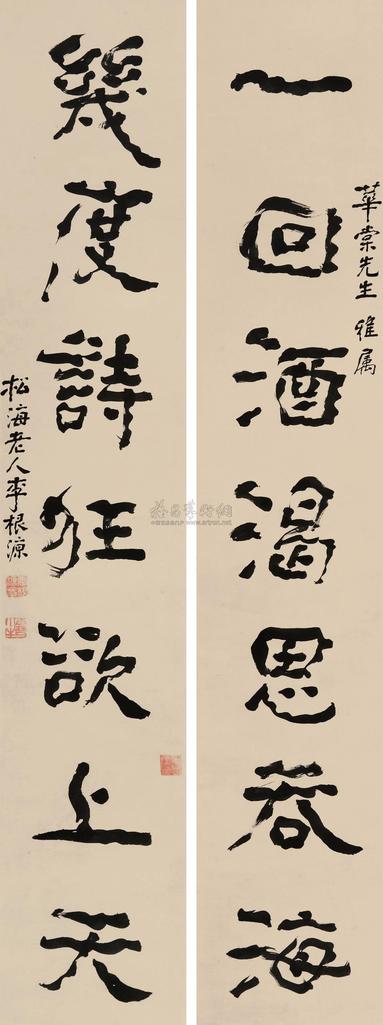 華棠先生 雅属
一回酒渴思吞海
幾度詩狂欲上天
松海老人李根源